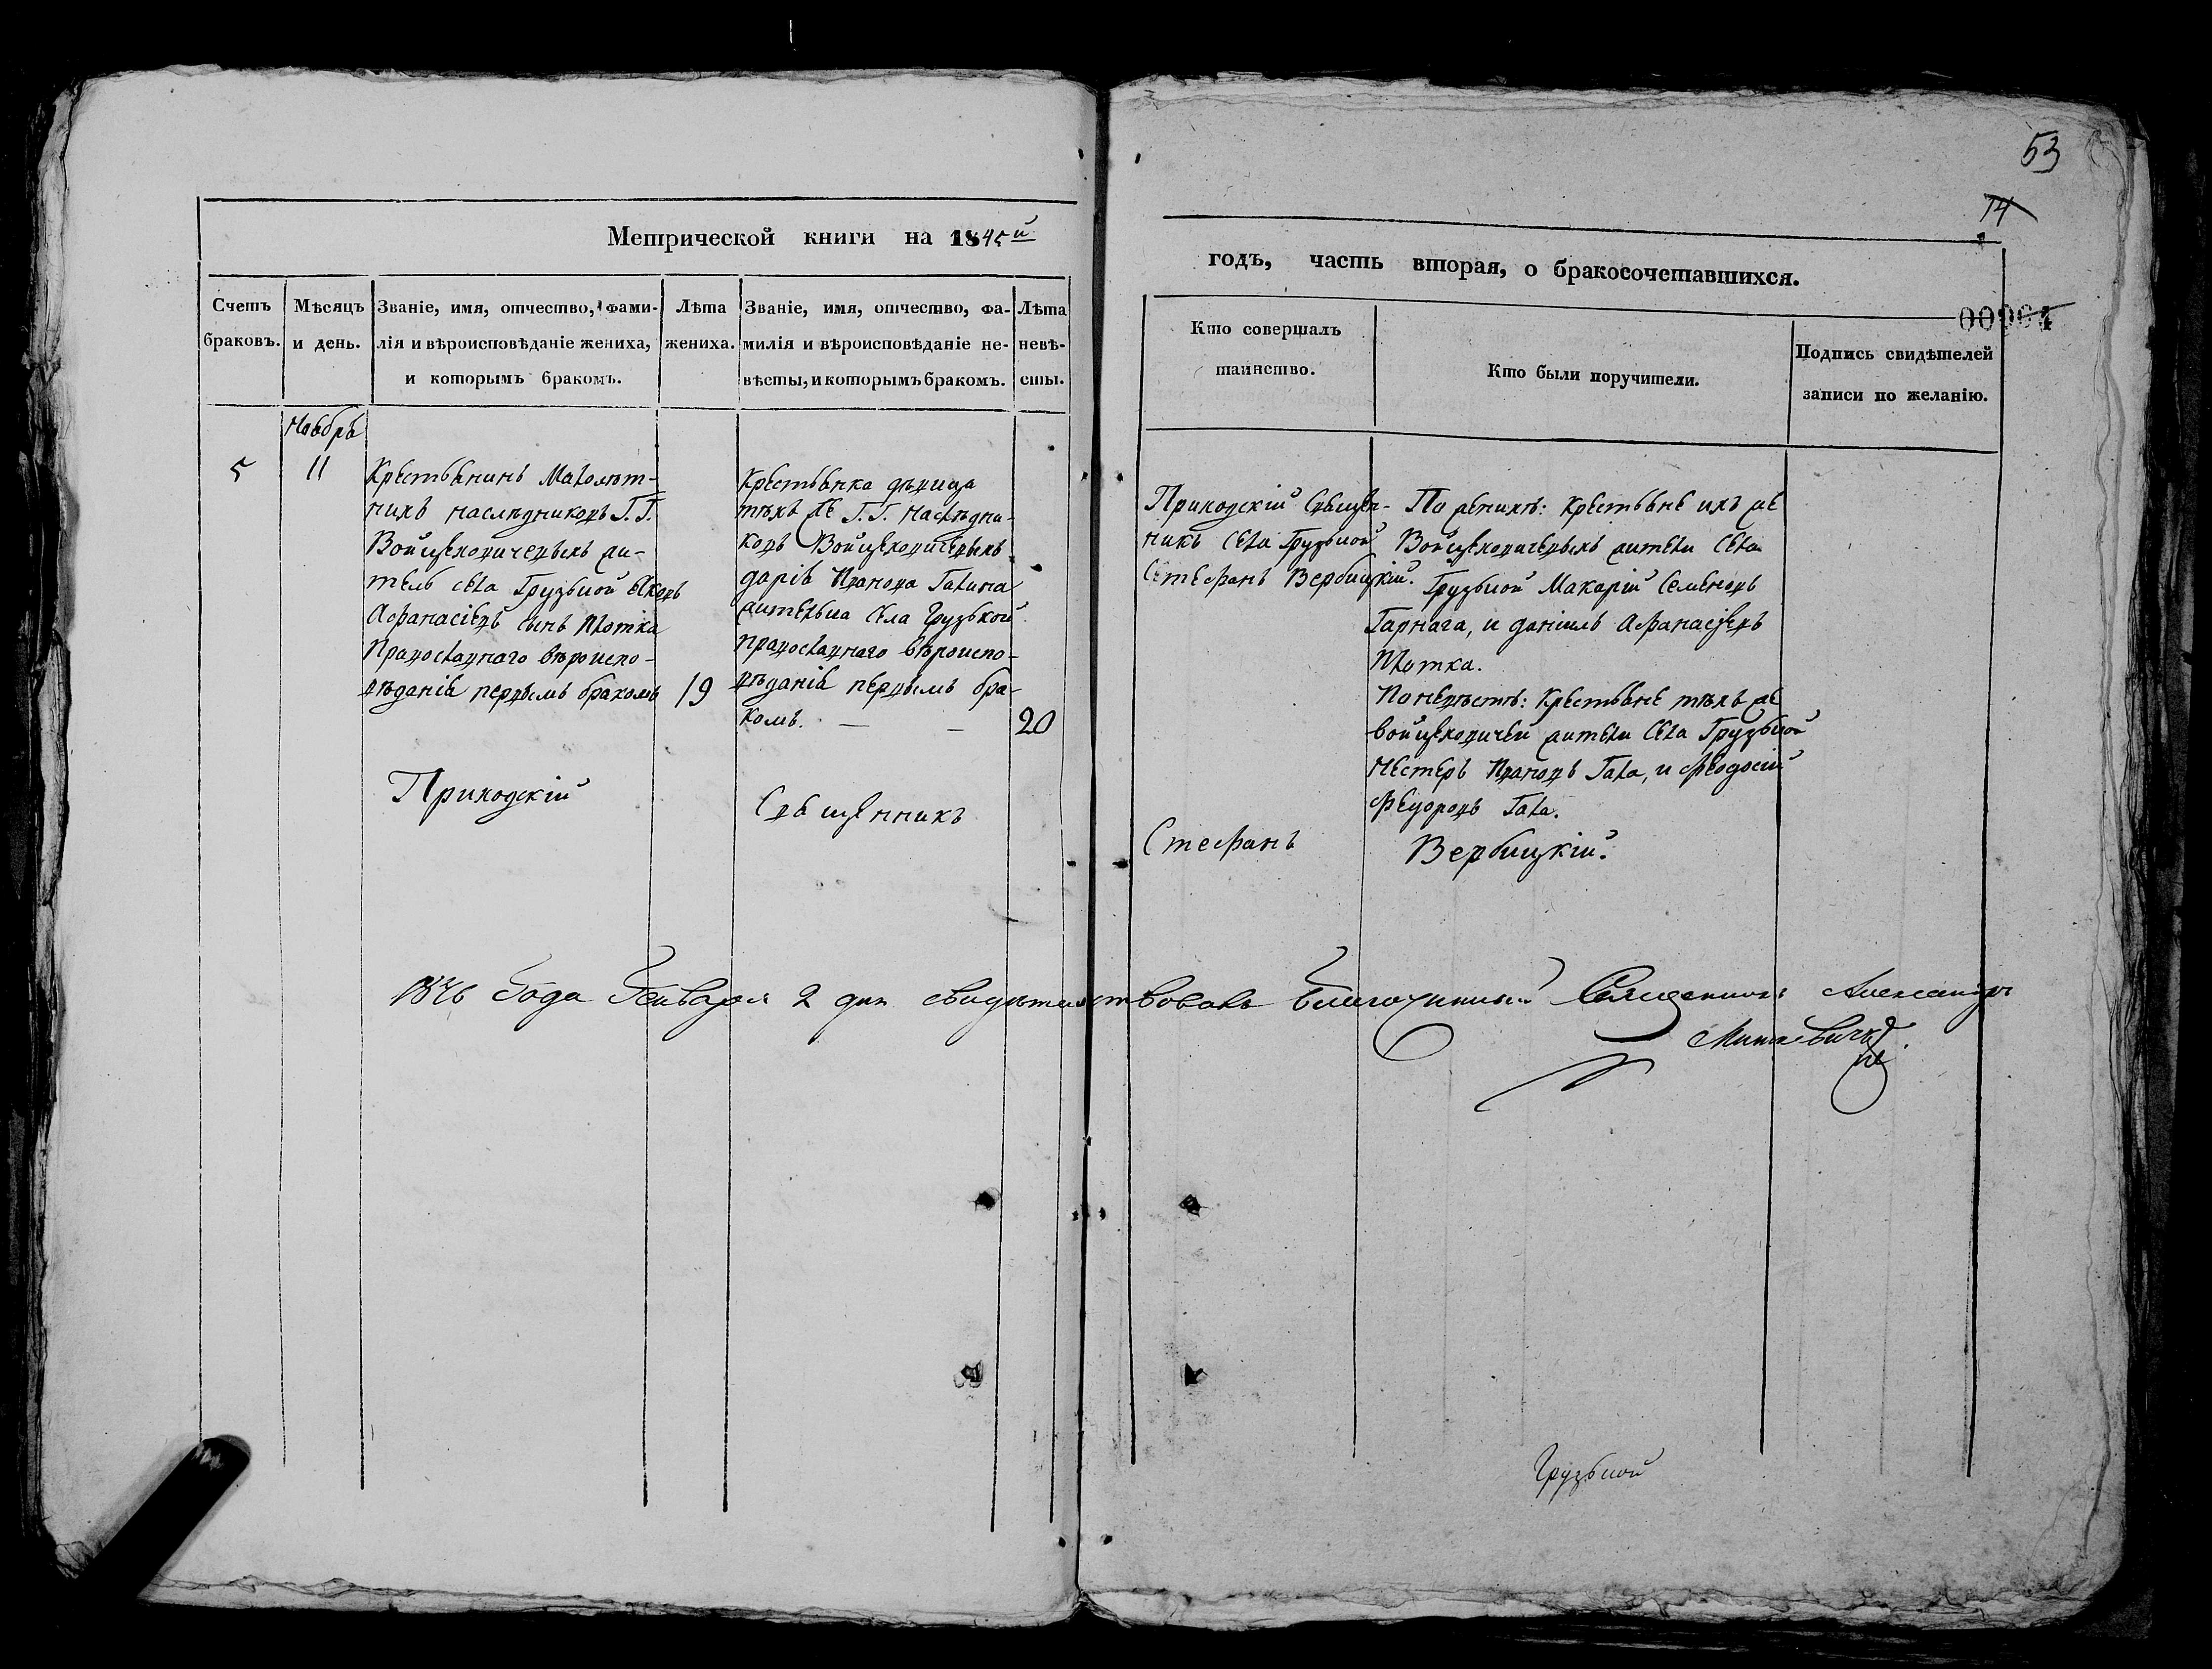 53
14
Метрической книги на 1845й
годъ, часть вторая, о бракосочетавшихся.
00964
Счетъ браковъ.
Мѣсяцъ и день.
Званіе, имя, отчество, фами-
лія и вѣроисповѣданіе жениха,
и которымъ бракомъ.
Лѣта жениха.
Званіе, имя, отчество, фа-
милія и вѣроисповѣданіе не-
вѣсты, и которымъ бракомъ.
Лѣта невѣ-
сты.
Кто совершалъ
таинство.
Кто были поручители.
Подпись свидѣтелей
записи по желанію.
Ноябрь
5
11
Крестьянинъ Малолѣт-
нихъ наслѣдниковъ Г.Г.
Войцеховичевыхъ жи-
тель села Грузькой Яковъ
Афанасіевъ сынъ Плотка
Православнаго вѣроиспо-
вѣданія первымъ бракомъ
19
Крестьянка дѣвица
тѣхъ же Г.Г. наслѣдни-
ковъ Войцеховичевыхъ
дарія Иванова Галина
жителька села Грузькой
православнаго вѣроиспо-
вѣданія первымъ бра-
комъ. — —
20
Приходскій Священ-
никъ села Грузькой
Стефанъ Вербицкій.
По женихѣ: Крестьяне ихъ же
Войцеховичевыхъ жители села
Грузькой Макарій Семеновъ
Гарнага, и даніилъ Афанасіевъ
Плотка.
По невѣстѣ: Крестьяне тѣхъ же
войцеховичей жители села Грузькой
Нестеръ Ивановъ Гала, и Феодосій
Феодоровъ Гала.
Приходскій Священникъ Стефанъ Вербицкій.
1846 Года Генваря 2 дня свидѣтельствовалъ благочинный Священникъ Александръ
Грузькой